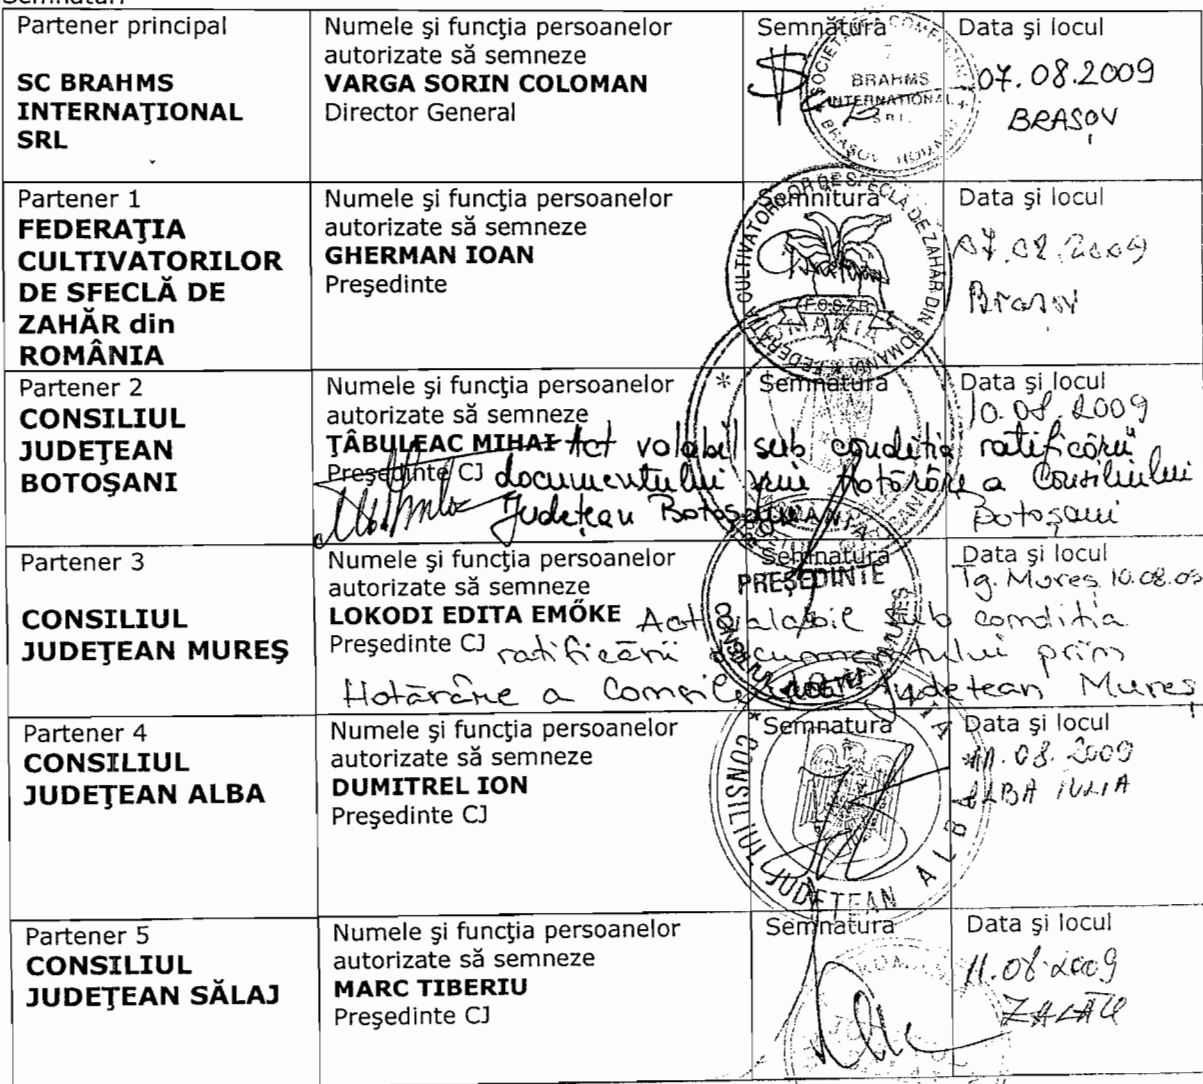 Semnături
Partener principal
SC BRAHMS
INTERNAŢIONAL
SRL
Numele şi funcţia persoanelor
autorizate să semneze
VARGA SORIN COLOMAN
Director General
Semnătura
BRAHMS
INTERNATIONAL
S.R.L.
Data şi locul
07.08.2009
BRAŞOV
Partener 1
FEDERAŢIA
CULTIVATORILOR
DE SFECLĂ DE
ZAHĂR din
ROMÂNIA
Numele şi funcţia persoanelor
autorizate să semneze
GHERMAN IOAN
Preşedinte
Semnătura
FEDERAŢIA CULTIVATORILOR DE SFECLĂ DE ZAHĂR DIN ROMÂNIA
F.C.S.Z.R.
Data şi locul
07.08.2009
Braşov
Partener 2
CONSILIUL
JUDEŢEAN
BOTOŞANI
Numele şi funcţia persoanelor
autorizate să semneze
ŢÂBULEAC MIHAI
Preşedinte CJ
Act valabil sub condiţia ratificării
documentului prin Hotărâre a Consiliului
Judeţean Botoşani
Semnătura
Data şi locul
10.08.2009
Botoşani
Partener 3
CONSILIUL
JUDEŢEAN MUREŞ
Numele şi funcţia persoanelor
autorizate să semneze
LOKODI EDITA EMŐKE
Preşedinte CJ
Act valabil sub conditia
ratificării documentului prin
Hotărâre a Consiliului Judetean Mureş
Semnătura
PREŞEDINTE
Data şi locul
Tg. Mureş 10.08.09
Partener 4
CONSILIUL
JUDEŢEAN ALBA
Numele şi funcţia persoanelor
autorizate să semneze
DUMITREL ION
Preşedinte CJ
Semnătura
CONSILIUL JUDEŢEAN ALBA
Data şi locul
11.08.2009
ALBA IULIA
Partener 5
CONSILIUL
JUDEŢEAN SĂLAJ
Numele şi funcţia persoanelor
autorizate să semneze
MARC TIBERIU
Preşedinte CJ
Semnătura
Data şi locul
11.08.2009
ZALĂU